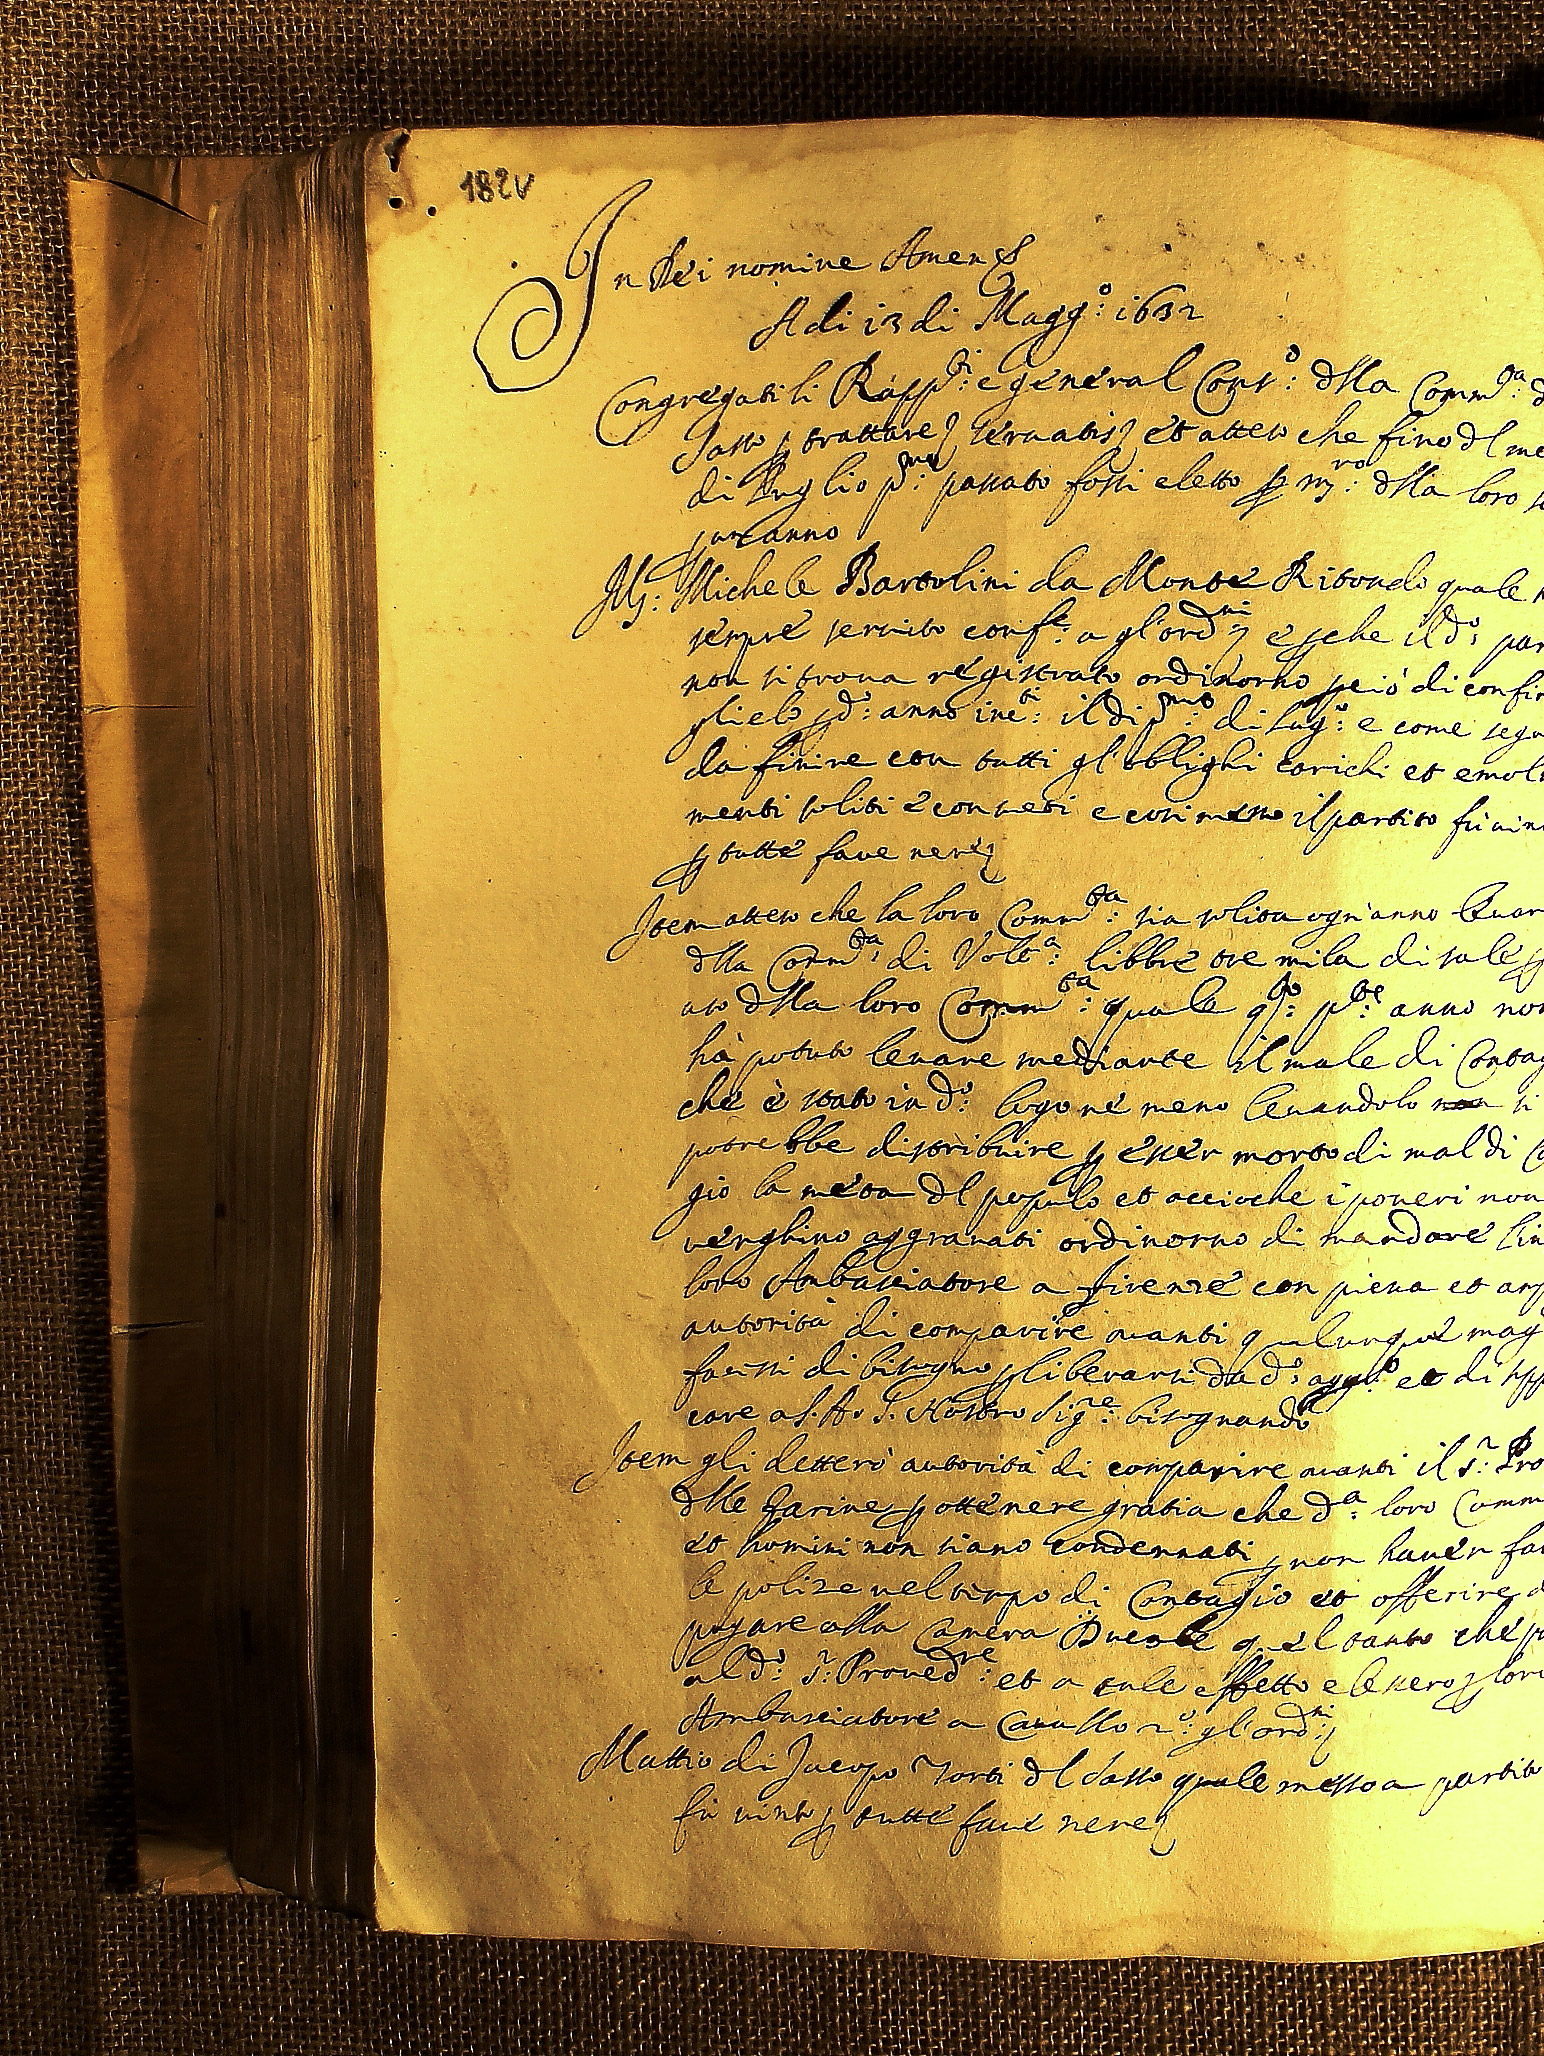 182v
In Dei nomine Amen
Adi 13 di Magg:o 1632
Congregati li Rapp:ti e general Cons:o dlla Comm:ta d
Sasso p trattare servatis et atteso che fino dl me
di Luglio p:mo passato fossi eletto p m:ro dlla loro
anno
M: Michele Bartolini da Monte Ritondo quale
sempre servito conf:e a gl'ord:ni e pche il d:o par
non si trova registrato ordinorno però di confir
glielo p d:o anno inc:ti il di p:mo di Lug:o e come segu
da finire con tutti gl'obblighi carichi et emolu
menti soliti e consueti e così messo il partito fù vin
p tutte fave nere
Item atteso che la loro Comm:ta sia solita ogn'anno levar
dlla Comm:ta di Volt:a libbre tre mila di sale p
uso dlla loro Comm:ta quale q:to p:te anno non
hà potuto levare mediante il male di Contag
che è stato in d:o lugo ne meno levandolo non si
potrebbe distribuire p esser morto di mal di Co
gio la meta dl populo et accioche i poveri non
venghino aggravati ordinorno di mandare lin
loro Ambasciatore a Firenze con piena et amp
autorità di comparire avanti qualunque mag
facessi di bisogno p liberarsi da d:o agg:o et di supp
care a S. A. S. Nostro Sig:re bisognando
Item gli dettero autorità di comparire avanti il S:r Pro
dlle farine p ottenere gratia che d:a loro Comm
et homini non siano condennati p non haver fat
le polize nel tempo di Contagio et offerire d
pagare alla Camera Ducale quel tanto che p
al d:o S:r Proved:re et a tale effetto elessero p loro
Ambasciatore a Cavallo s:o gl'ord:ni
Mattio di Jacopo Torti dl Sasso quale messo a partito
fù vinto p tutte fave nere